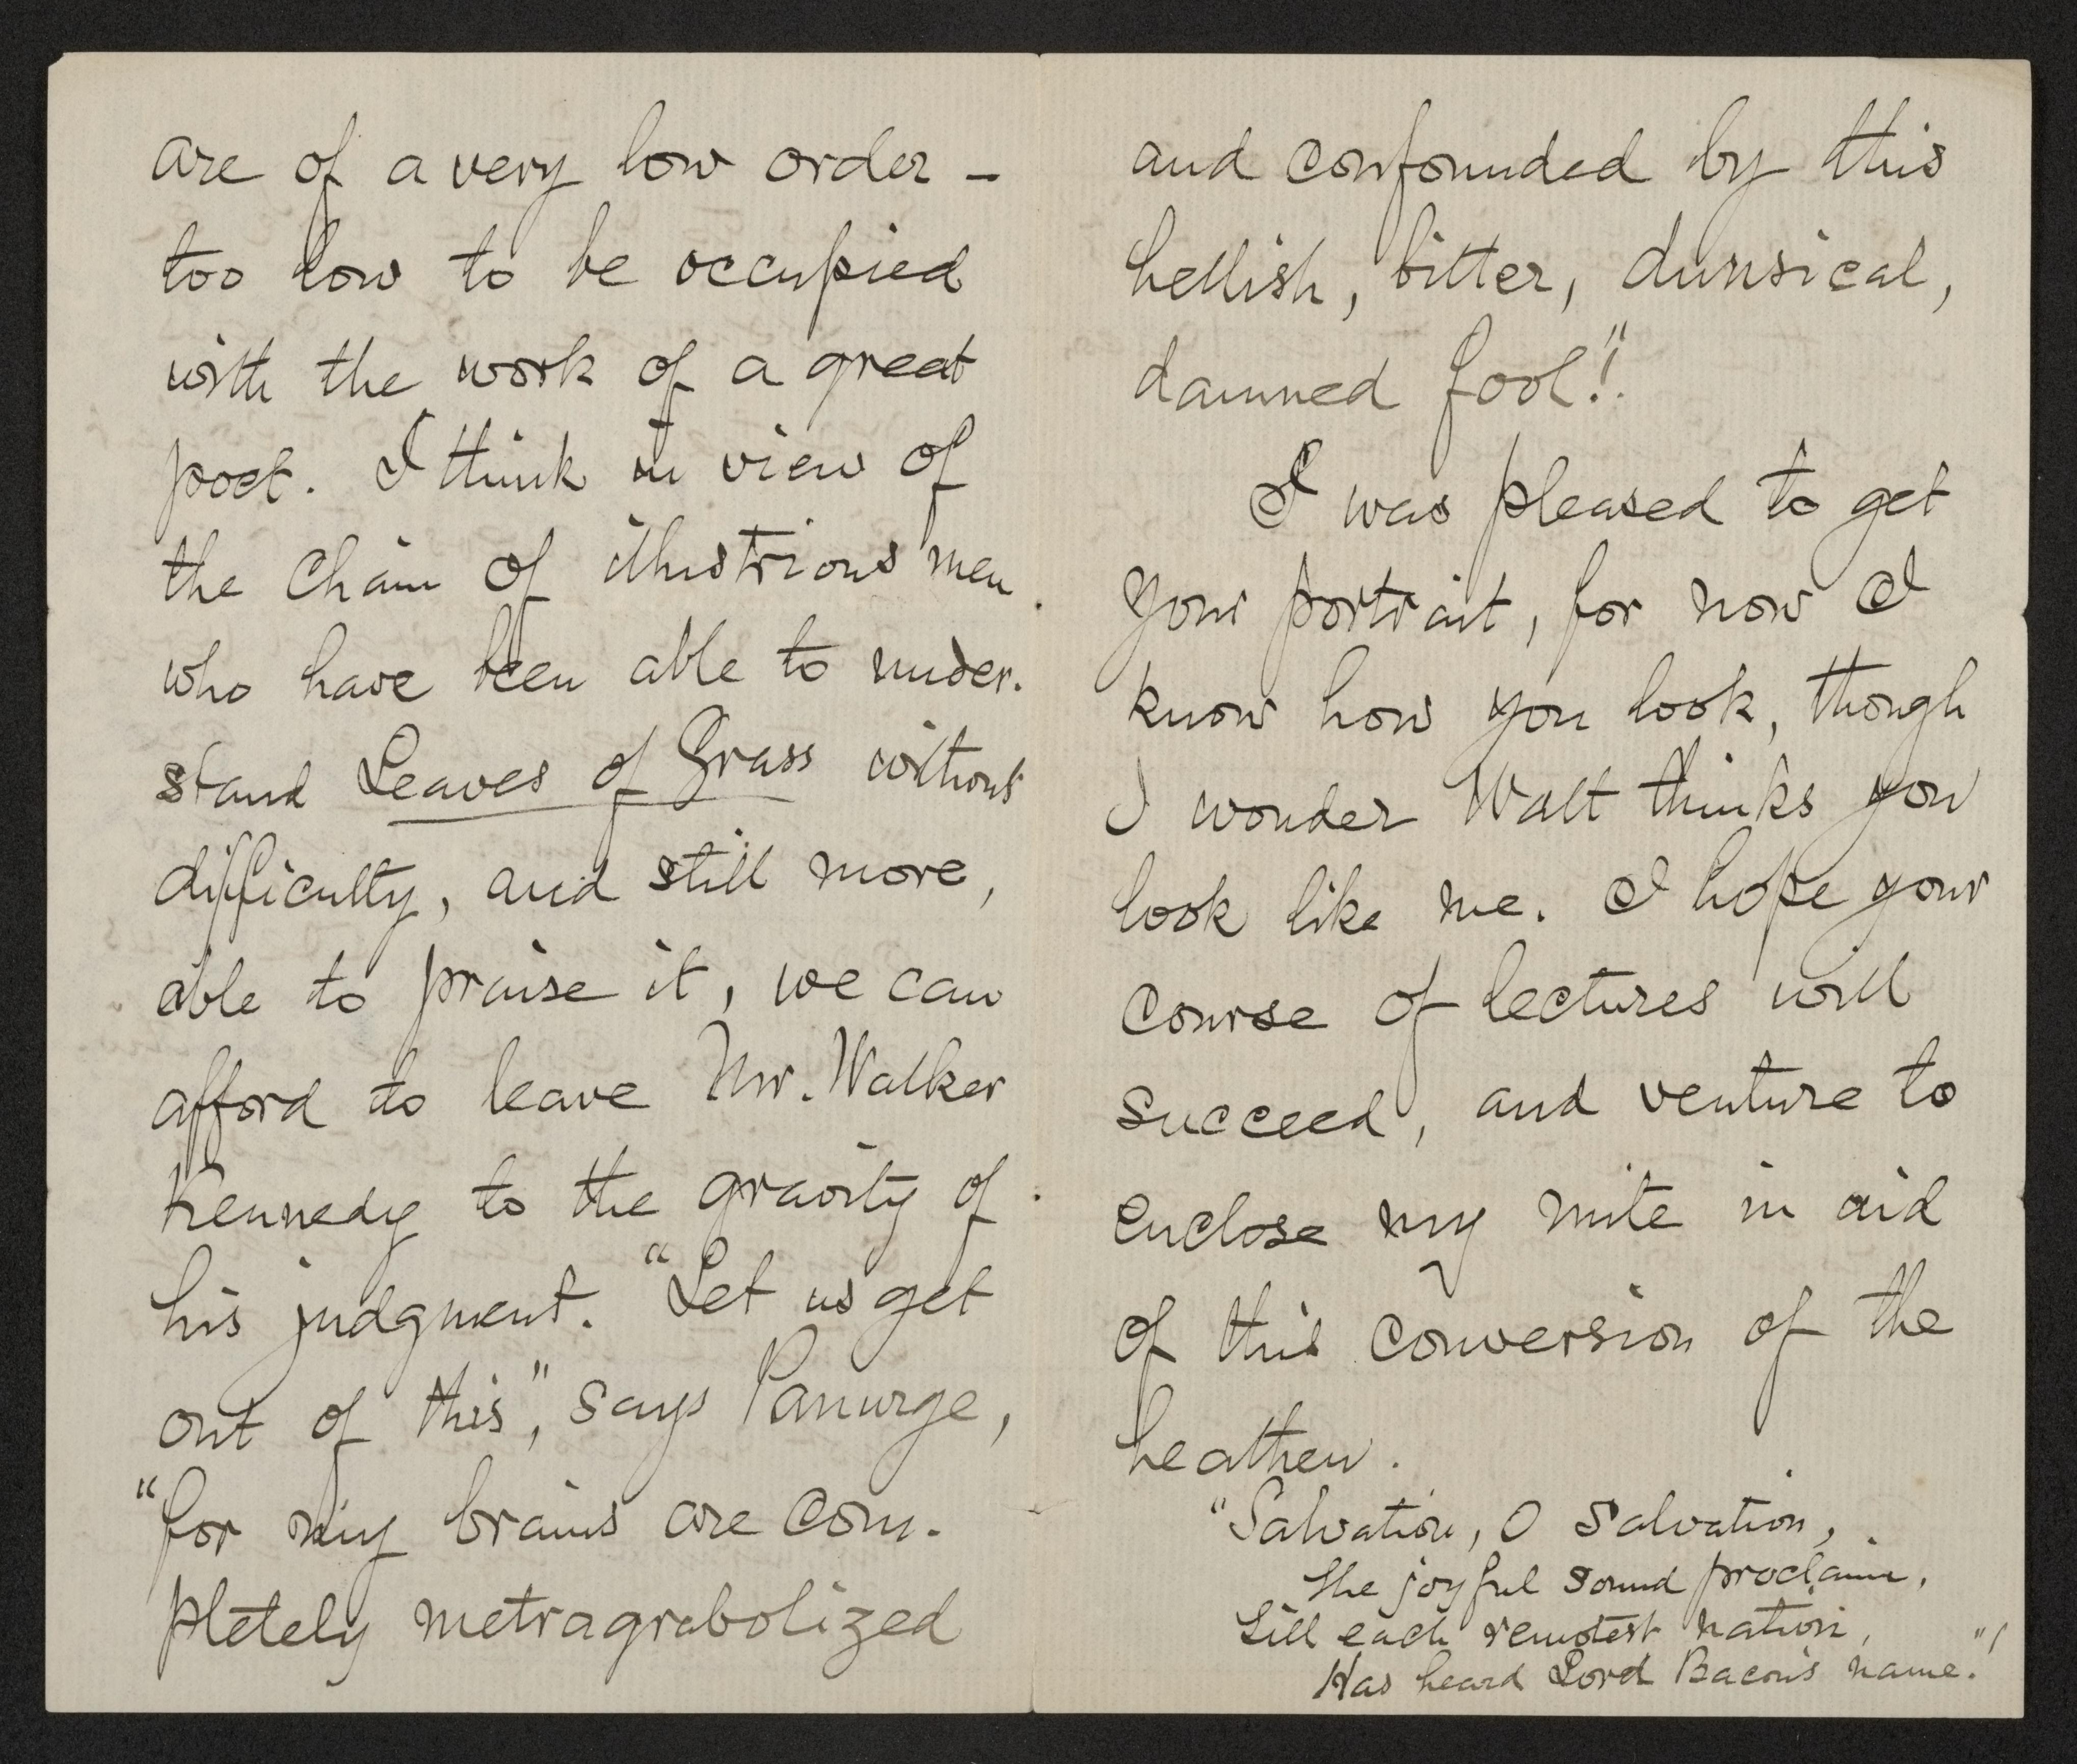 are of a very low order –
too low to be occupied
with the work of a great
poet. I think in view of
the chain of illustrious men
who have been able to under-
stand Leaves of Grass without
difficulty, and still more,
able to praise it, we can
afford to leave Mr. Walker
Kennedy to the gravity of
his judgment. "Let us get
out of this", says Panurge,
"for my brains are com-
pletely metragrabolized
and confounded by this
hellish, bitter, dunsical,
damned fool!"
I was pleased to get
your portrait, for now I
know how you look, though
I wonder Walt thinks you
look like me. I hope your
course of lectures will
succeed, and venture to
enclose my mite in aid
of this conversion of the
heathen.
"Salvation, O Salvation,
The joyful sound proclaim,
Till each remotest nation,
Has heard Lord Bacon's name."!